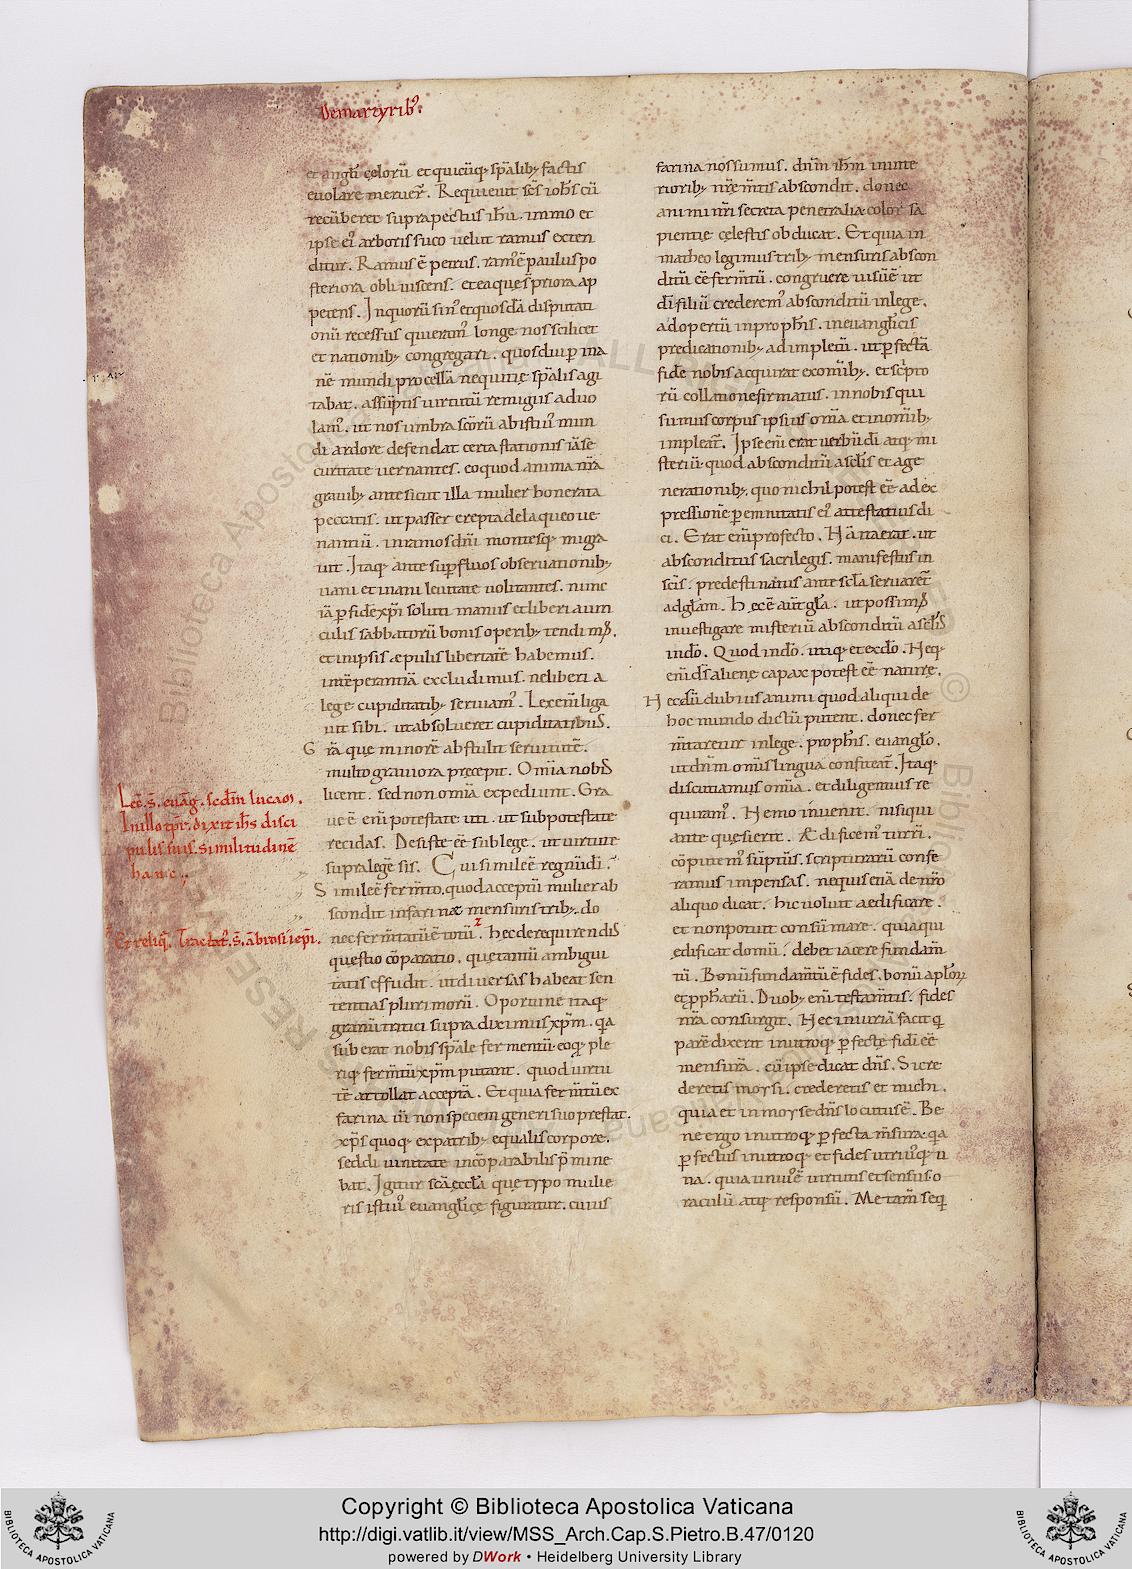 Demartyrib᷒:
et angl̄i celorū et quicūq; sp̄alib; factis
euolare meruer̄. Requieuit sc̄s ioh̄s cū
recūberet supra pectus ih̄u. immo et
ipse ei᷒ arboris suco uelut ramus exten
ditur. Ramus ē petrus. ram᷒ ē paulus po
steriora obliuiscens. et ea que s̄ priora ap
petens. In quorū sin᷒ et quosdā disputati
onū recessus qui eram᷒ longe nos scilicet
et nationib; congregati. quos diu ꝑ ina
nē mundi procella nequitię sp̄alis agi
tabat. assūptis uirtutū remigiis aduo
lam᷒. ut nos umbra sc̄orū ab isti᷒ mun
di ardore defendat certa stationis iā se
curitate uernantes. eo quod anima nr̄a
grauib; ante sicut illa mulier honerata
peccatis. ut passer erepta de laqueo ue
nantiū. in ramos dn̄i montesq; migra
uit. Itaq; ante suꝑfluos obseruationib;
uani et inani leuitate uolitantes. nunc
iā ꝑ fidē xp̄i soluti manus et liberi a uin
culis sabbatorū bonis operib; tendim᷒.
et in ipsis æpulis libertatē habemus.
intēperantiā excludimus. ne liberi a
lege cupiditatib; seruiam᷒. Lex enī liga
uit sibi. ut absolueret cupiditatibus.
Gr̄a que minorē abstulit seruitutē.
multo grauiora precepit. Om̄ia nobis
licent. sed non om̄ia expediunt. Gra
ue ē enī potestate uti. ut sub potestate
recidas. Desiste eē sub lege. ut uirtute
supra legē sis. Cui simile ē regnū d̄i.
Lec̄. s̄. euāg. scdm̄ lucam.
In illo tp̄r. dixit ih̄s disci
pulis suis. similitudinē
hanc;
Simile ēferm̄to, quod acceptū mulier ab
scondit in farinæ mensuris trib;. do
nec ferm̄tatū ē totū. hec de requirendis
Et reliq̄. Tractat᷒. s̄. ābrosii ep̄i.
questio cōparatio. que tantū ambigui
tatis effudit. ut diuersas habeat sen
tentias plurimorū. Oportune itaq;
granū tritici supra diximus xp̄m. q̄a
suberat nobis sp̄ale fermentū. eoq; ple
riq; ferm̄tū xp̄m putant. quod uirtu
tē attollat acceptā. Et quia ferm̄tū ex
farina uī non speciem generi suo prestat.
xp̄s quoq; ex patrib; equalis corpore.
sed diuinitate incōparabilis p̄mine
bat. Igitur sc̄a eccl̄a que typo mulie
ris isti᷒ euangl̄icę figuratur. cuius
farina nos sumus. dn̄m ih̄m in inte
riorib; nr̄e m̄tis abscondit. donec
animi nr̄i secreta penetralia color sa
pientie celestis obducat. Et quia in
matheo legimus trib; mensuris abscon
ditū eē ferm̄tū. congruere uisū ē ut
dī filiū crederem᷒ absconditū in lege.
adopertū in proph̄is. in euangl̄icis
predicationib; adimpletū. ut ꝑfectā
fidē nobis acquirat ex om̄ib;. et sc̄pto
rū collatione firmatus. in nobis qui
sumus corpus ipsius om̄a et in om̄ib;
impleat̄. Ipse enī erat uerbū dī atq; mi
steriū quod absconditū a sc̄lis et age
nerationib;. quo nichil potest eē ad ex
pressionē ꝑennitatis ei᷒ attestatius di
ci. Erat enī profecto. Hā na erat. ut
absconditus sacrilegis. manifestus in
sc̄is. predestinatus ante scl̄a seruaret᷒
ad gl̄am. Hec ē aut̄ gl̄a. ut possim᷒
inuestigare misteriū absconditū a sclis
in dō. Quod in dō. utiq; et ex dō. Neq;
enī dī aliene capax potest eē nature.
Hec dū dubius animi quod aliqui de
hoc mundo dictū putent. donec fer
m̄taretur in lege. proph̄is. euangl̄o.
ut dn̄m om̄is lingua confiteat̄. Itaq;
discutiamus om̄ia. et diligentius re
quiram᷒. Nemo inuenit. nisi qui
ante quęsierit. Ædificem᷒ turrī.
cōputem᷒ sūptus. scripturarū confe
ramus impensas. nequis etiā de nr̄o
aliquo dicat. hic uoluit aedificare.
et non potuit consūmare. quia qui
ędificat domū. debet iacere fundam̄
tū. Bonū fundam̄tū ē fides. bonū apl̄oꝝ
et ꝓphetarū. Duob; enī testam̄tis. fides
nr̄a consurgit. Nec iniuriā facit q̄
parē dixerit in utroq; ꝑfectę fidei eē
mensurā. cū ipse dicat dn̄s. Si cre
deretis moysi. crederetis et michi.
quia et in moyse dn̄s locutus ē. Be
ne ergo in utroq; ꝑfecta m̄sura. q̄a
ꝑfectus in utroq; et fides utriusq; u
na. quia unius ē uirtutis et sensus o
raculū atq; responsū. Me tam̄ seq